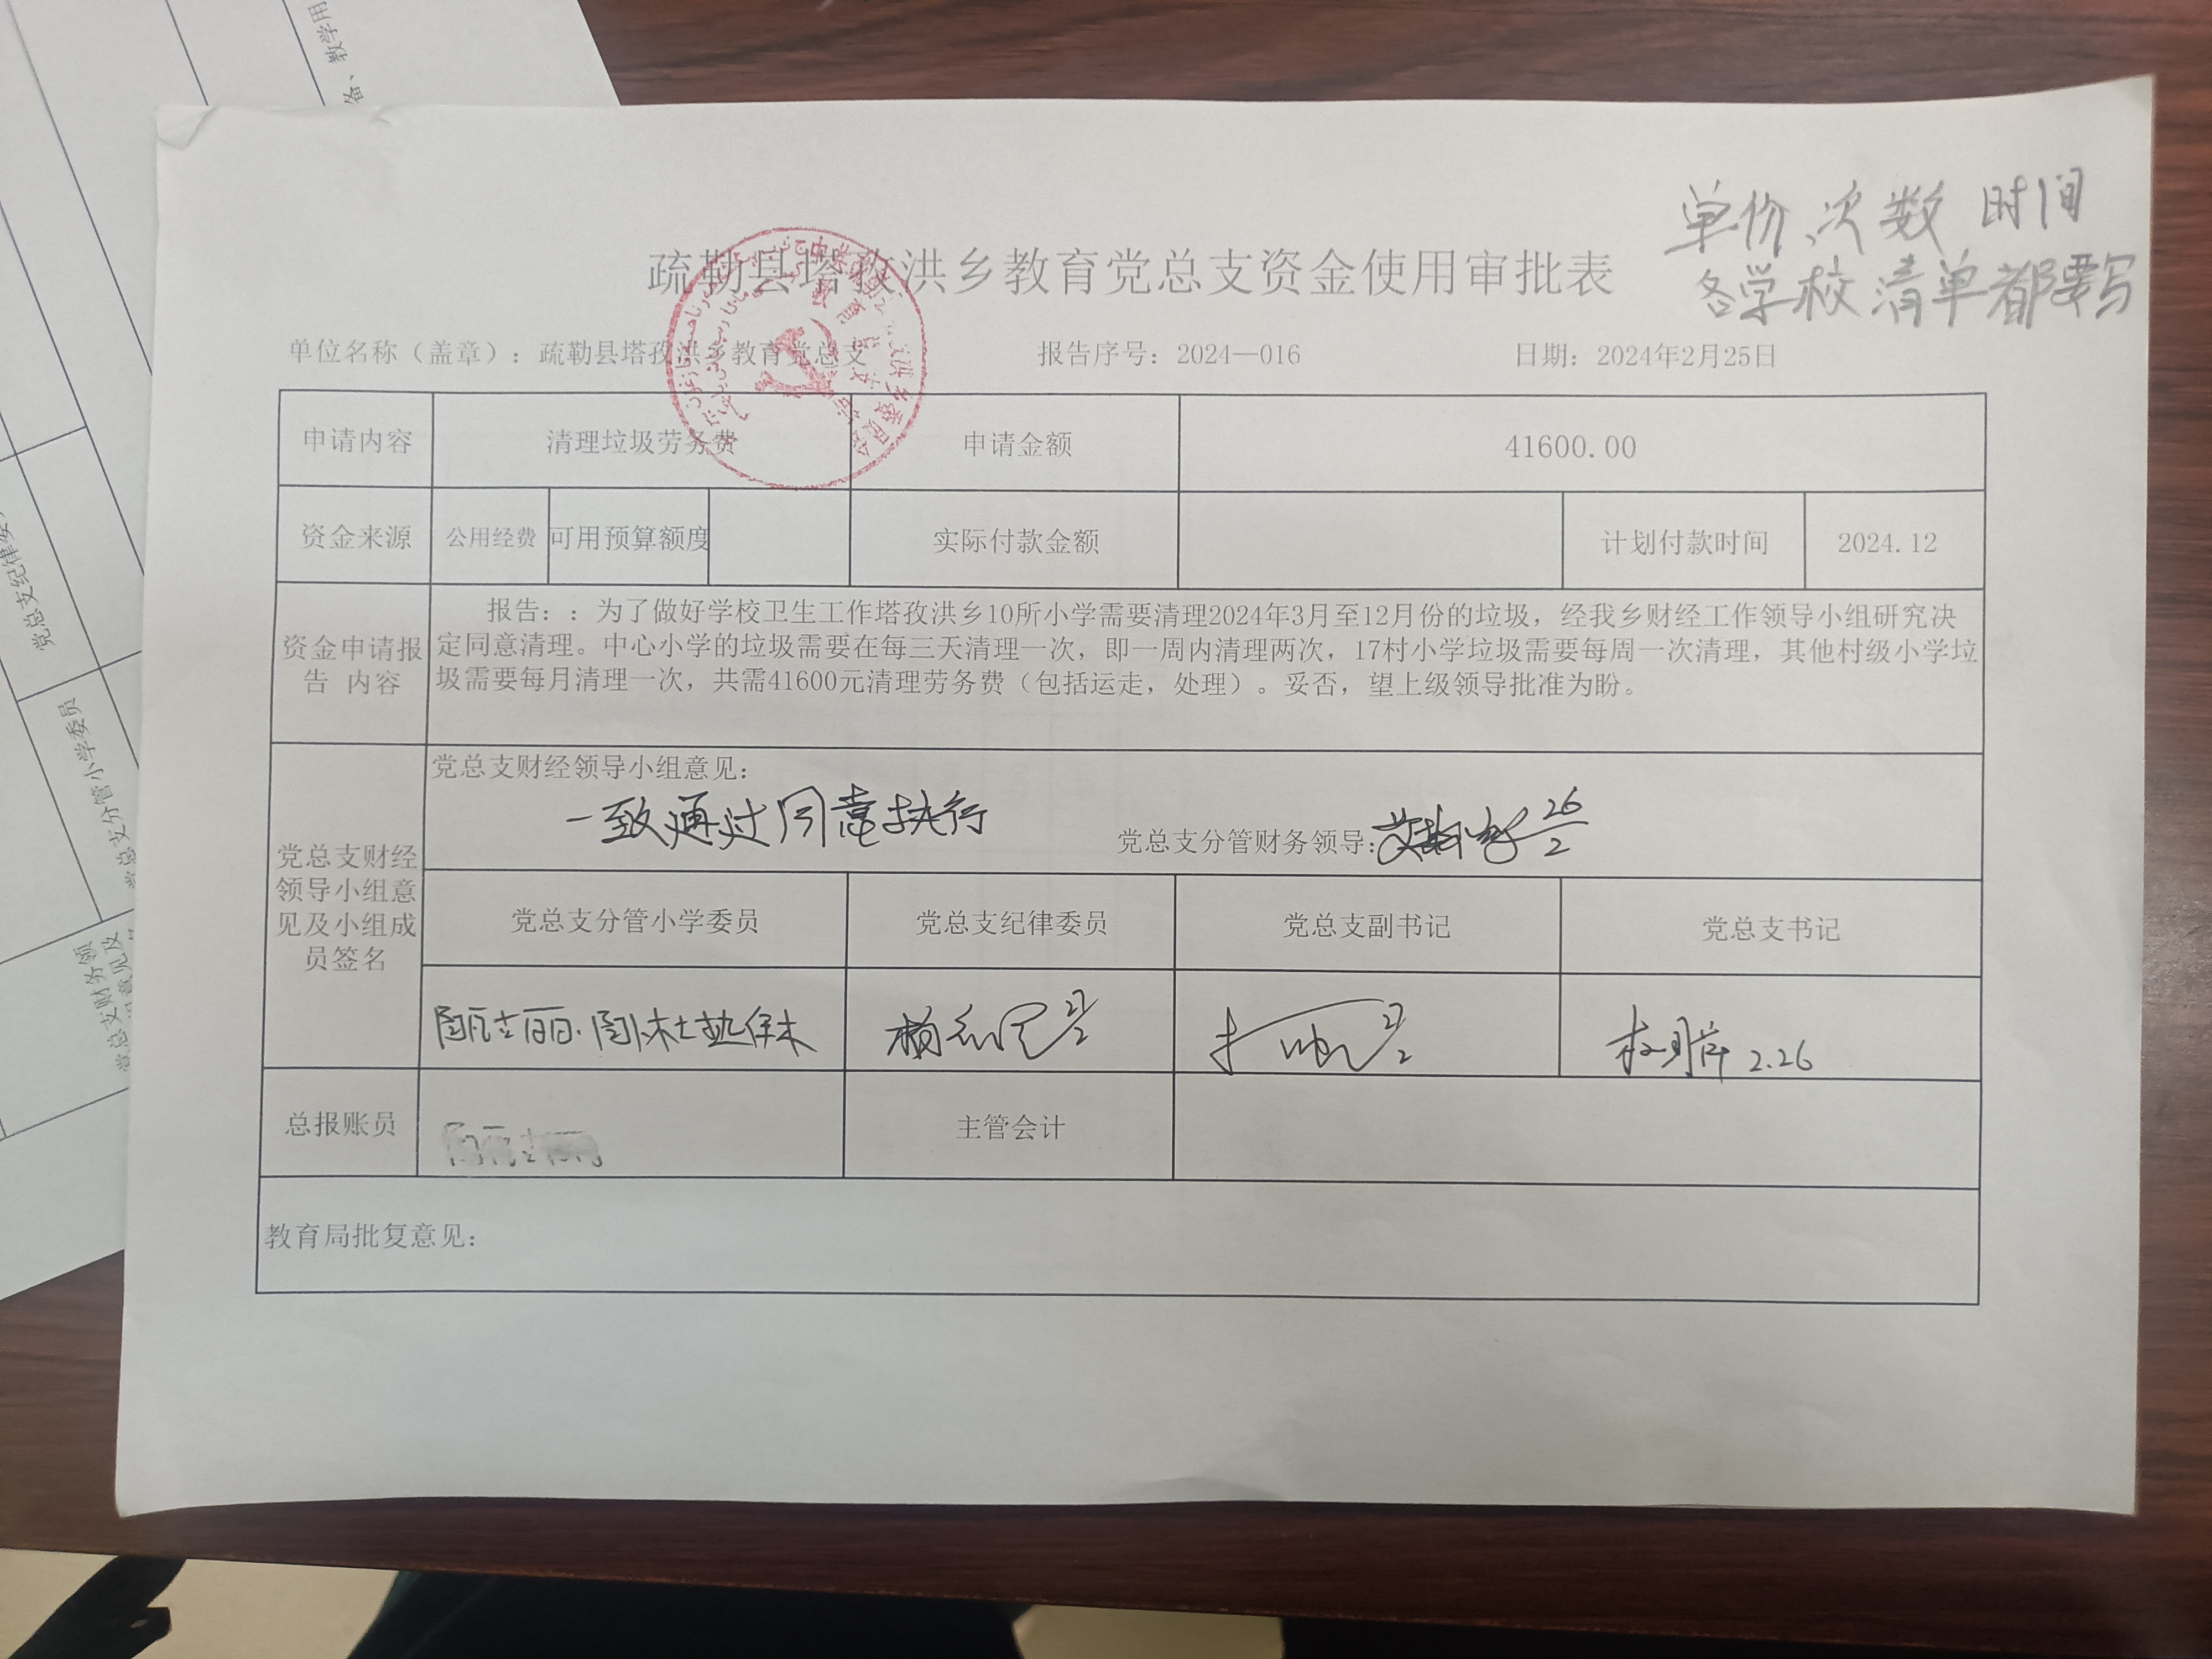 单价、次数 时间
各学校清单都要写
疏勒县塔孜洪乡教育党总支资金使用审批表
单位名称（盖章）：疏勒县塔孜洪乡教育党总支 报告序号：2024—016 日期：2024年2月25日
申请内容 清理垃圾劳务费 申请金额 41600.00
资金来源 公用经费 可用预算额度 实际付款金额 计划付款时间 2024.12
资金申请报告 内容
报告：：为了做好学校卫生工作塔孜洪乡10所小学需要清理2024年3月至12月份的垃圾，经我乡财经工作领导小组研究决
定同意清理。中心小学的垃圾需要在每三天清理一次，即一周内清理两次，17村小学垃圾需要每周一次清理，其他村级小学垃
圾需要每月清理一次，共需41600元清理劳务费（包括运走，处理）。妥否，望上级领导批准为盼。
党总支财经
领导小组意
见及小组成
员签名
党总支财经领导小组意见：
一致通过同意执行
党总支分管财务领导： 26/2
党总支分管小学委员 党总支纪律委员 党总支副书记 党总支书记
2.26
总报账员 主管会计
教育局批复意见：
备、教学用
党总支纪律委
党总支分管小学委员
党总支财务领